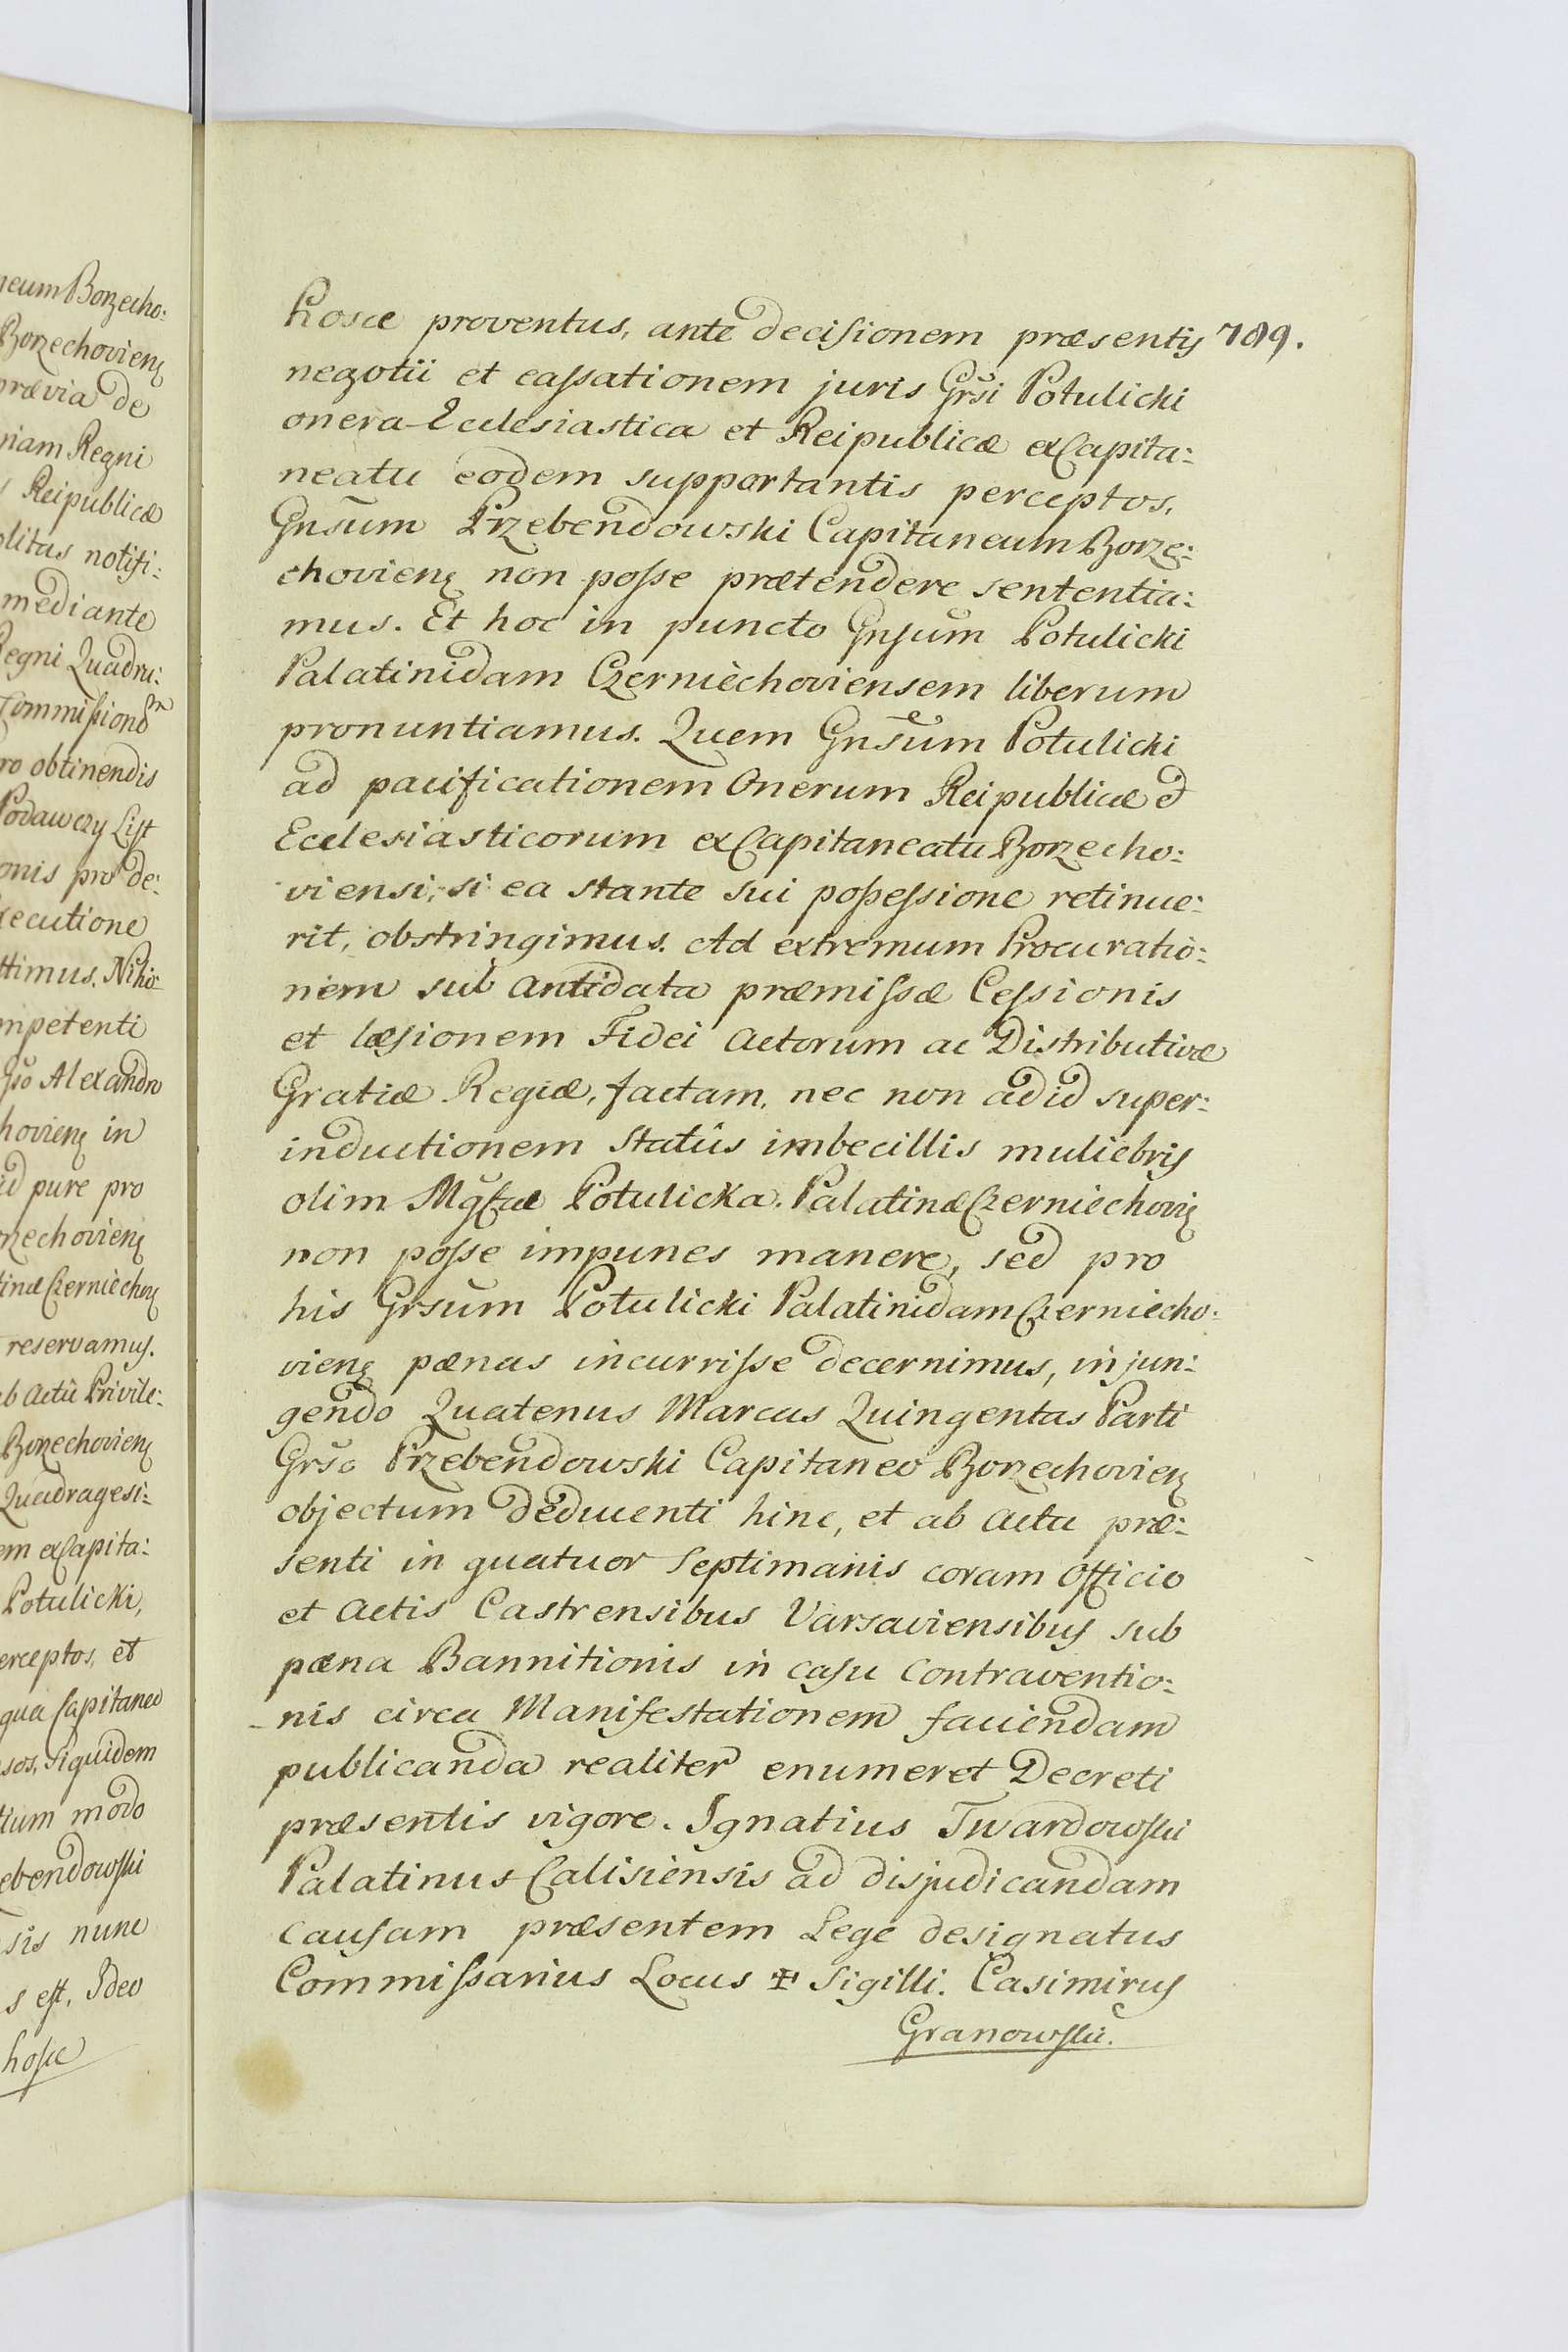 neum Borzecho:
Borzechovienȩ
prævia de
niam Regni
Reipublicæ
olitas notifi:
mediante
Regni Quadru:
Commissionem
ro obtinendis
Podawczy List
onis pro de:
xecutione
ttimus. Niho
mpetenti
Gso Alexandro
hovienȩ in
id pure pro
rzechovienȩ
tinæ Czerniechovȩ
reservamus.
ab Actû Privile:
Borzechovienȩ
Quadragesi:
em ex Capita:
Potulicki,
erceptos, et
qua Capitaneo
sos, siquidem
tium modo
ebendowski
sis nunc
s est, Ideo
hosce
hosce proventus, ante decisionem præsentis 789.
negotii et cassationem juris Grsi Potulicki
onera Ecclesiastica et Reipublicæ ex Capita:
neatu eodem supportantis perceptos,
Gnsum Przebendowski Capitaneum Borze:
chovienȩ non posse prætendere sententia:
mus. Et hoc in puncto Gnsum Potulicki
Palatinidam Czerniechoviensem liberum
pronuntiamus. Quem Gnsum Potulicki
ad pacificationem Onerum Reipublicæ &
Ecclesiasticorum ex Capitaneatu Borzecho:
viensi, si ea stante sui possessione retinue:
rit, obstringimus. Ad extremum Procuratio:
nem sub antidata præmissæ Cessionis
et læsionem Fidei Actorum ac Distributivæ
Gratiæ Regiæ, factam, nec non ad id super:
inductionem Statûs imbecillis muliebris
olim Mgcæ Potulicka. Palatinæ Czerniechovȩ
non posse impunes manere, sed pro
his Grsum Potulicki Palatinidam Czerniecho:
vienȩ pænas incurrisse decernimus, injun:
gendo Quatenus Marcas Quingentas Parti
Grso Przebendowski Capitaneo Borzechovienȩ
objectum deducenti hinc, et ab actu præ:
senti in quatuor Septimanis coram Officio
et Actis Castrensibus Varsaviensibus sub
pæna Bannitionis in casu Contraventio:
nis circa Manifestationem faciendam
publicanda realiter enumeret Decreti
præsentis vigore. Ignatius Twardowski
Palatinus Calisiensis ad disjudicandam
Causam præsentem Lege designatus
Commissarius Locus ✠ Sigilli. Casimirus
Granowski.